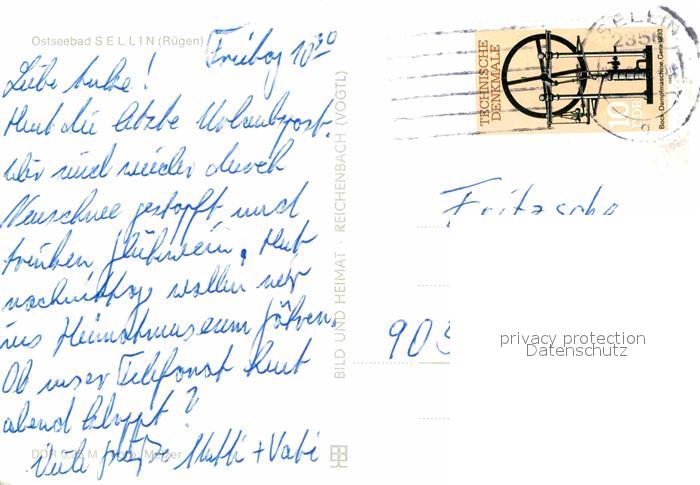 Ostseebad SELLIN (Rügen)
Freitag 10³⁰
Liebe Anke!
Heut die letzte Urlaubspost.
Wir sind wieder durch
Neuschnee gestapft und
trinken Glühwein. Heut
nachmittag wollen wir
ins Heimatmuseum fahren.
Ob unser Telefonat heut
abend klappt?
Viele Grüße Mutti + Vati
DDR 0,25 M Foto: Müller
BILD UND HEIMAT · REICHENBACH (VOGTL)
SELLIN
2356
TECHNISCHE
DENKMALE
10
DDR
Bock-Dampfmaschine, Gera 1833
Fritzsche
903
privacy protection
Datenschutz